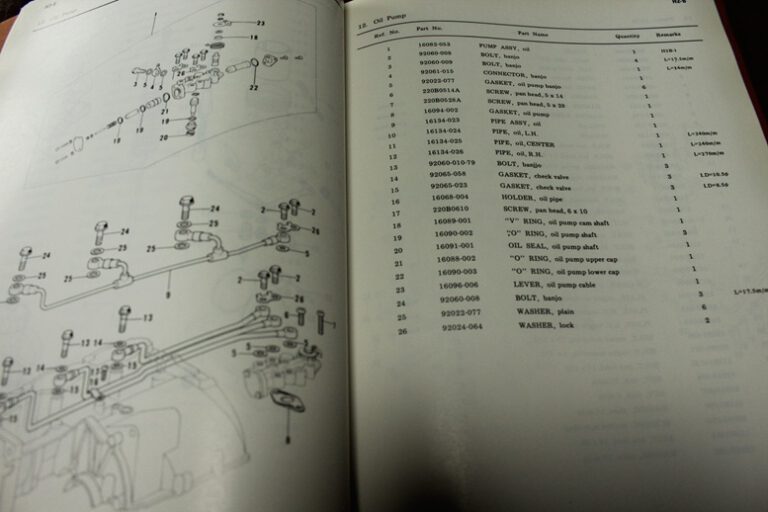 12. Oil Pump
Ref. No. Part No. Part Name Quantity Remarks
1 16082-053 PUMP ASSY, oil 1 H1B-1
2 92060-008 BOLT, banjo 4 L=17.5m/m
3 92060-009 BOLT, banjo 1 L=14m/m
4 92061-015 CONNECTOR, banjo 1
5 92022-077 GASKET, oil pump banjo 6
6 220B0514A SCREW, pan head, 5 x 14 1
7 220B0528A SCREW, pan head, 5 x 28 1
8 16094-002 GASKET, oil pump 1
9 16134-023 PIPE ASSY, oil 1
10 16134-024 PIPE, oil, L.H. 1 L=240m/m
11 16134-025 PIPE, oil, CENTER 1
12 16134-026 PIPE, oil, R.H. 1 L=270m/m
13 92060-010-79 BOLT, banjjo 3
14 92065-058 GASKET, check valve 3
15 92065-023 GASKET, check valve 3
16 16068-004 HOLDER, oil pipe 1
17 220B0610 SCREW, pan head, 6 x 10 1
18 16089-001 "V" RING, oil pump cam shaft 1
19 16090-002 "O" RING, oil pump shaft 3
20 16091-001 OIL SEAL, oil pump shaft 1
21 16088-002 "O" RING, oil pump upper cap 1
22 16090-003 "O" RING, oil pump lower cap 1
23 16096-006 LEVER, oil pump cable 1
24 92060-008 BOLT, banjo 3 L=17.5m/m
25 92022-077 WASHER, plain 6
26 92024-064 WASHER, lock 2
1
23
18
26
22
3 5 4 5
21
19
19
18
20
24
2
2
25
26
24
25
5
24
25
25
9
2
2
26
13
6
7
13
14
5
5
13
14
15
14
15
15
8